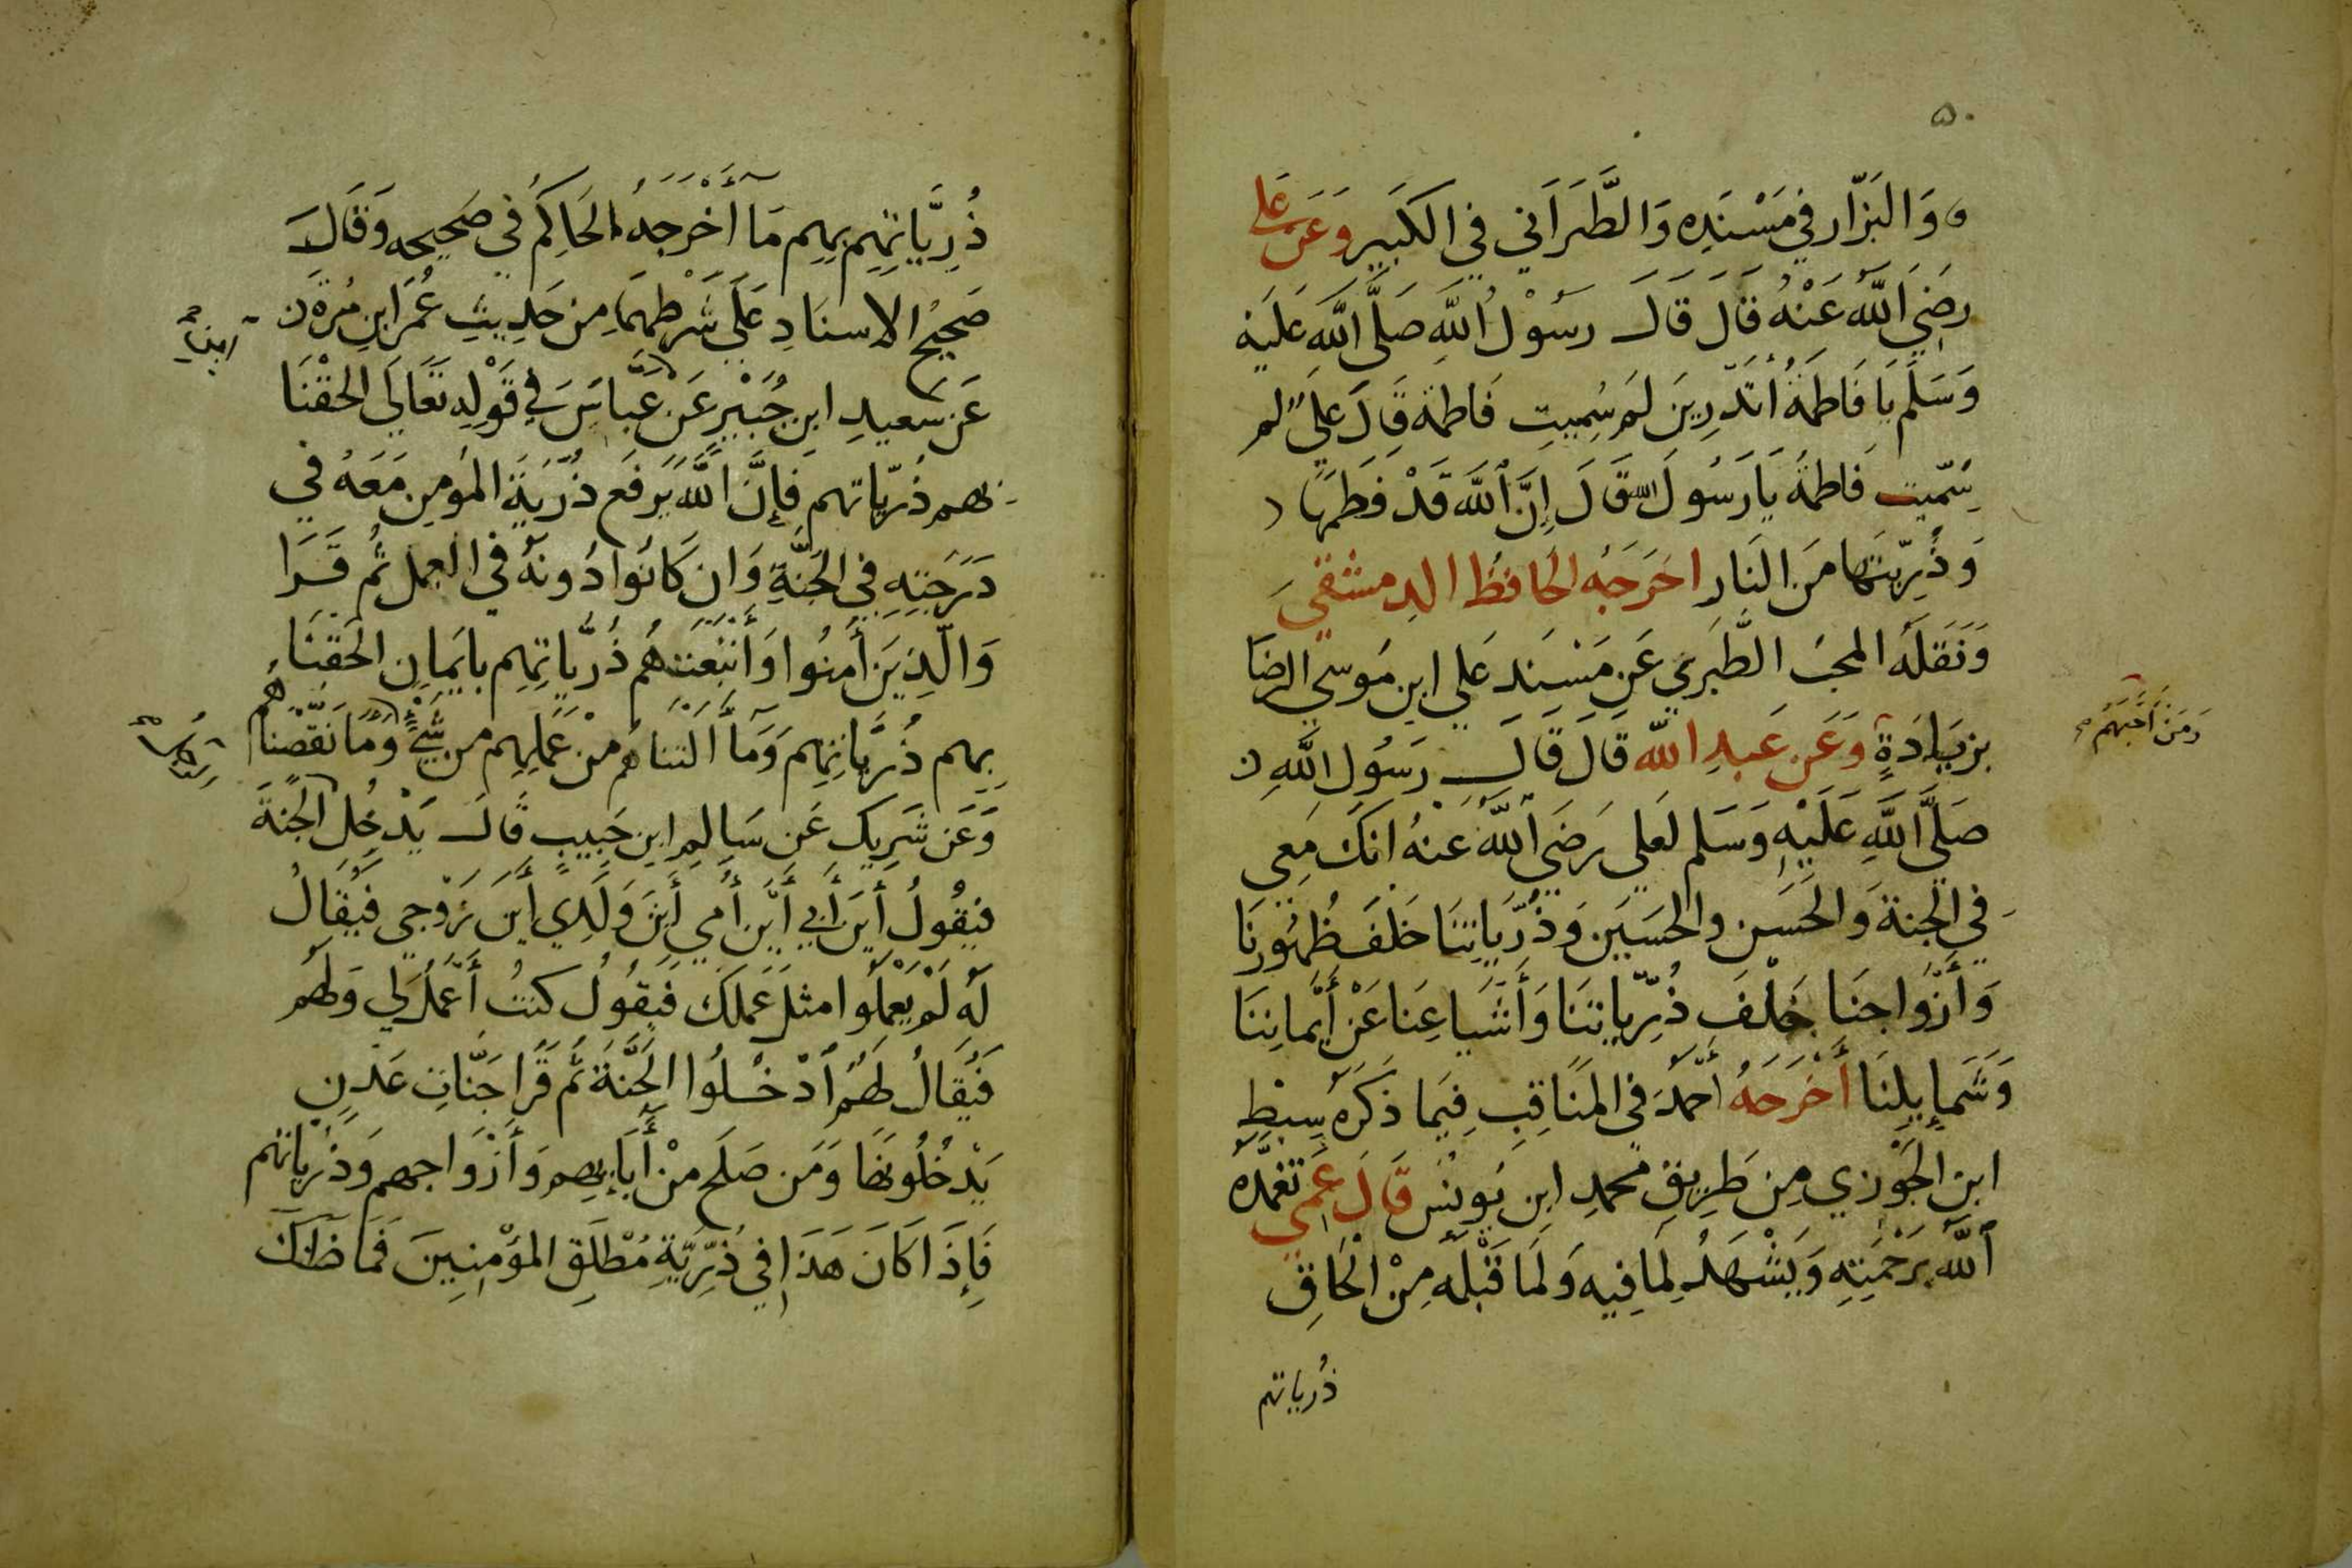 ٥٠
وَالبَزّار في مَسْنَدِه وَالطَّبَرَاني في الكَبَير وَعَن عَلي
رضَيَ اللَّه عَنْهُ قالَ قَالَ رسَوْلُ اللَّهِ صَلَّى اللَّه عَليَه
وَسَلَّم يَا فَاطمَةُ أتَدّرِينَ لَم سُمِيتِ فَاطمة قَالَ عليٌ لم
سُمّيت فَاطمَة يَا رَسُولَ اللّه قَالَ إنَّ اللَّه قَدْ فَطمَهَا
وَذُرِّيتَها مَنَ النَار اخَرَجَهُ الحَافظُ الدِمشقي
وَنَقَلَهُ المحبُ الطَّبَري عَن مَسنَد عَلي ابن مَوسَي الرضَا
بزيَادَةٍ وَعَن عَبدِ اللّه قَالَ قَالَ رَسُول اللَّهِ
وَمَنَ أحَبَّهَمُ
صَلَّى اللَّهِ عَلَيْهِ وَسَلم لعَلي رَضَيَ اللَّهُ عَنْهُ انكَ مَعِي
في الجَنةَ وَالحَسَن وَالحسَين وَذُرِّيَاتِنَا خَلفَ ظُهُورنَا
وَأزْوَاجنَا خَلْفَ ذُرِّيَاتنَا وَأَشَيَاعِنَا عَنْ أَيمَانِنَا
وَشَمايِلِنَا أخْرَجَهُ أحَمدُ في المنَاقِبِ فِيَما ذَكَرَهُ سِبْطِ
ابن الجَوْزي مِن طَرِيق محمدِ ابِن يَوِنُسَ قَالَ عَمي تغمّدَه
اللَّه بَرَحْمَتِهِ وَيَشْهَدُ لِمَا فِيِه وَلمَا قَبْلَه مِنْ الْحَاقِ
ذُرياتهم
ذُرِيَّاتِهِم بهِم مَا أخْرَجَهُ الحَاكِمُ في صَحيحِه وَقَالَ
صَحيحُ الاسنَادِ عَلَي شَرْطهِمَا مِن حَدِيثِ عُمَر ابِن مُرةَ
عَن سَعيدِ ابِن جُبَيْرٍ عَن عَبَّاسَ في قَوْلِه تَعَالَي الحقْنَا
ابن
بهم ذُرّيّاتهم فَإنَّ اللَّهَ يَرفَع ذُرّيَةَ المُومِن مَعَهُ في
دَرَجَتِهِ في الجَنَّةِ وَان كَانُوا دُونَهُ في العمل ثُم قَرَا
وَالّذِيَن أَمنُوا وَأَتْبَعَتهُم ذُرِّيّاتِهِم بايَمانِ الحَقنَا
بِهِم ذُرِّيَّاتِهِم وَمَا ألتنَاهُم مْن عَمَلِهِم من شَيْءٍ وَمَا نَقَصْنَاهُم
وَعَن شَرِيك عَن سَالِمِ ابن حَبِيبٍ قَالَ يَدْخِل الجنةَ
فيَقُولُ أيَن أبي أيَّن أمي أيَنَ وَلَدِي أيَن زَوْجي فيُقَالُ
لَه لَمْ يعَمَلُوا مثلَ عَمَلكَ فَيِقُولُ كنتُ أَعَمَلُ لي وَلهُم
فَيُقَالُ لهُم أدْخُلُوا الجَنَّةَ ثُم قَرَا جَنَّاتِ عَدْنٍ
يَدْخُلُونهَا وَمَن صَلَح مْن أَبَايِهِم وَأَزْوَاجهِم وَذُرِيَاتهم
فَإِذَا كَانَ هَذَا في ذُرِّيَّةِ مُطْلَقِ المؤْمِنِينَ فَمَا ظَنُّكَ